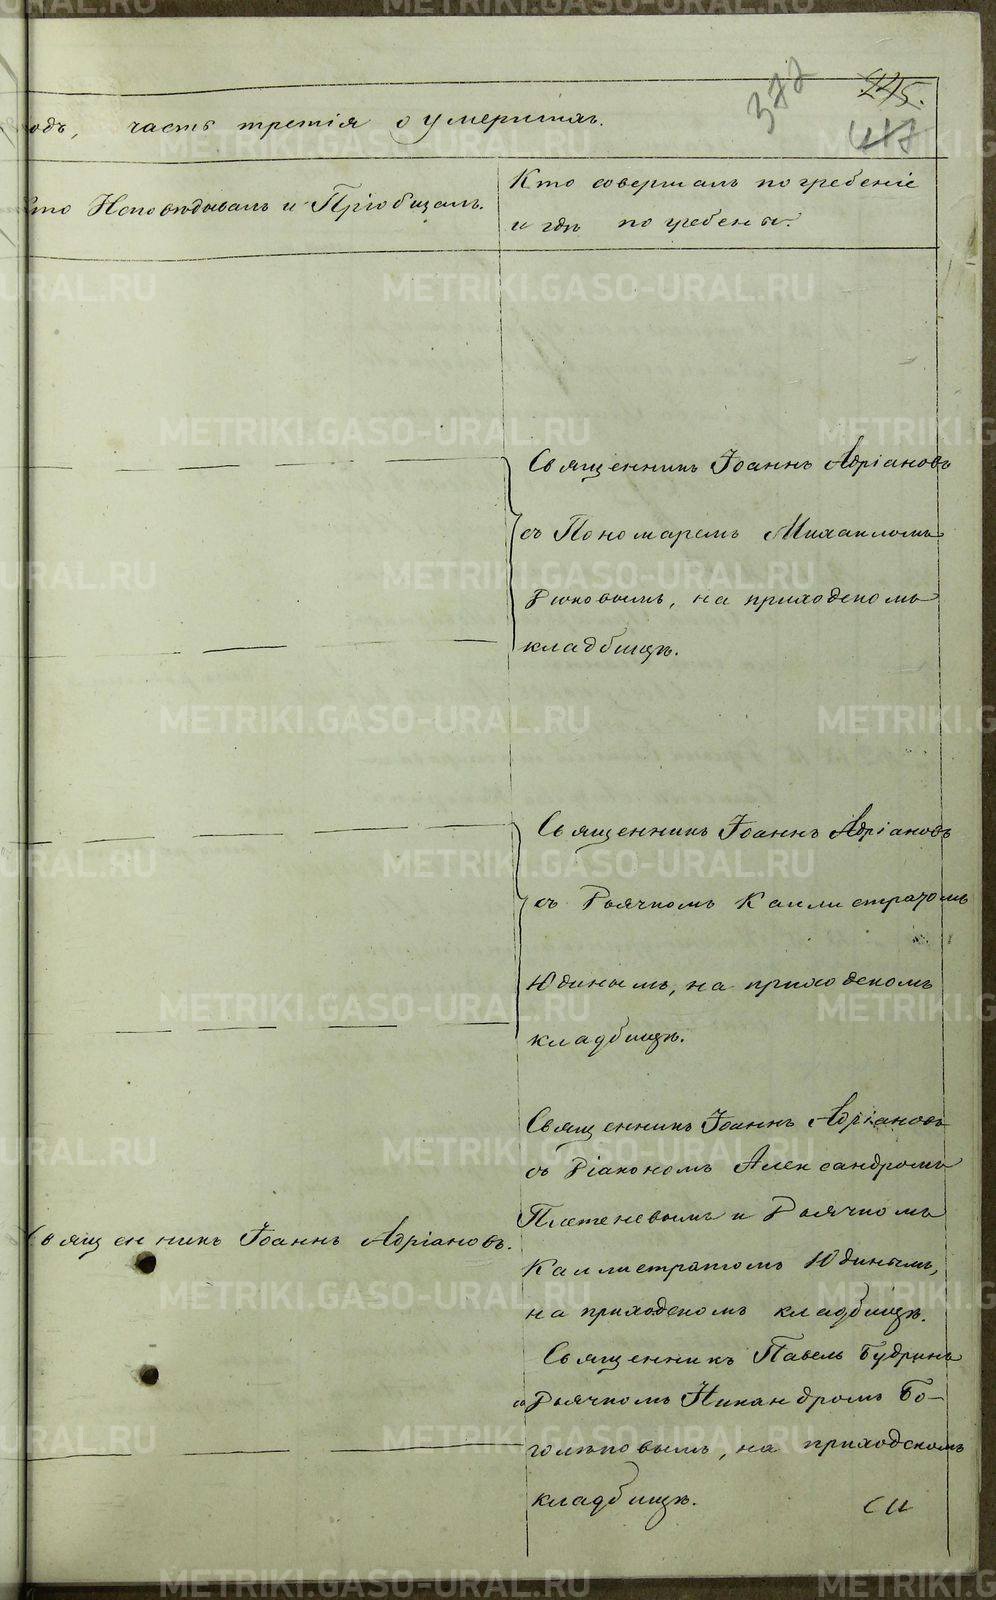 372
225.
417
одъ, часть третія о умершихъ.
Кто Исповѣдывалъ и Пріобщалъ.
Кто совершалъ погребеніе
и гдѣ погребены.
Священникъ Іоаннъ Адріановъ
съ Пономаремъ Михаиломъ
на приходскомъ
кладбищѣ.
Священникъ Іоаннъ Адріановъ
съ Дьячкомъ Каллистратомъ
Юдинымъ, на приходскомъ
кладбищѣ.
Священникъ Іоаннъ Адріановъ
съ Діакономъ Александромъ
Плетеневымъ и Дьячкомъ
Священникъ Іоаннъ Адріановъ.
Каллистратомъ Юдинымъ,
на приходскомъ кладбищѣ.
Священникъ Павелъ Будринъ
съ Дьячкомъ Никандромъ Бо-
голѣповымъ, на приходскомъ
кладбищѣ.
METRIKI.GASO-URAL.RU